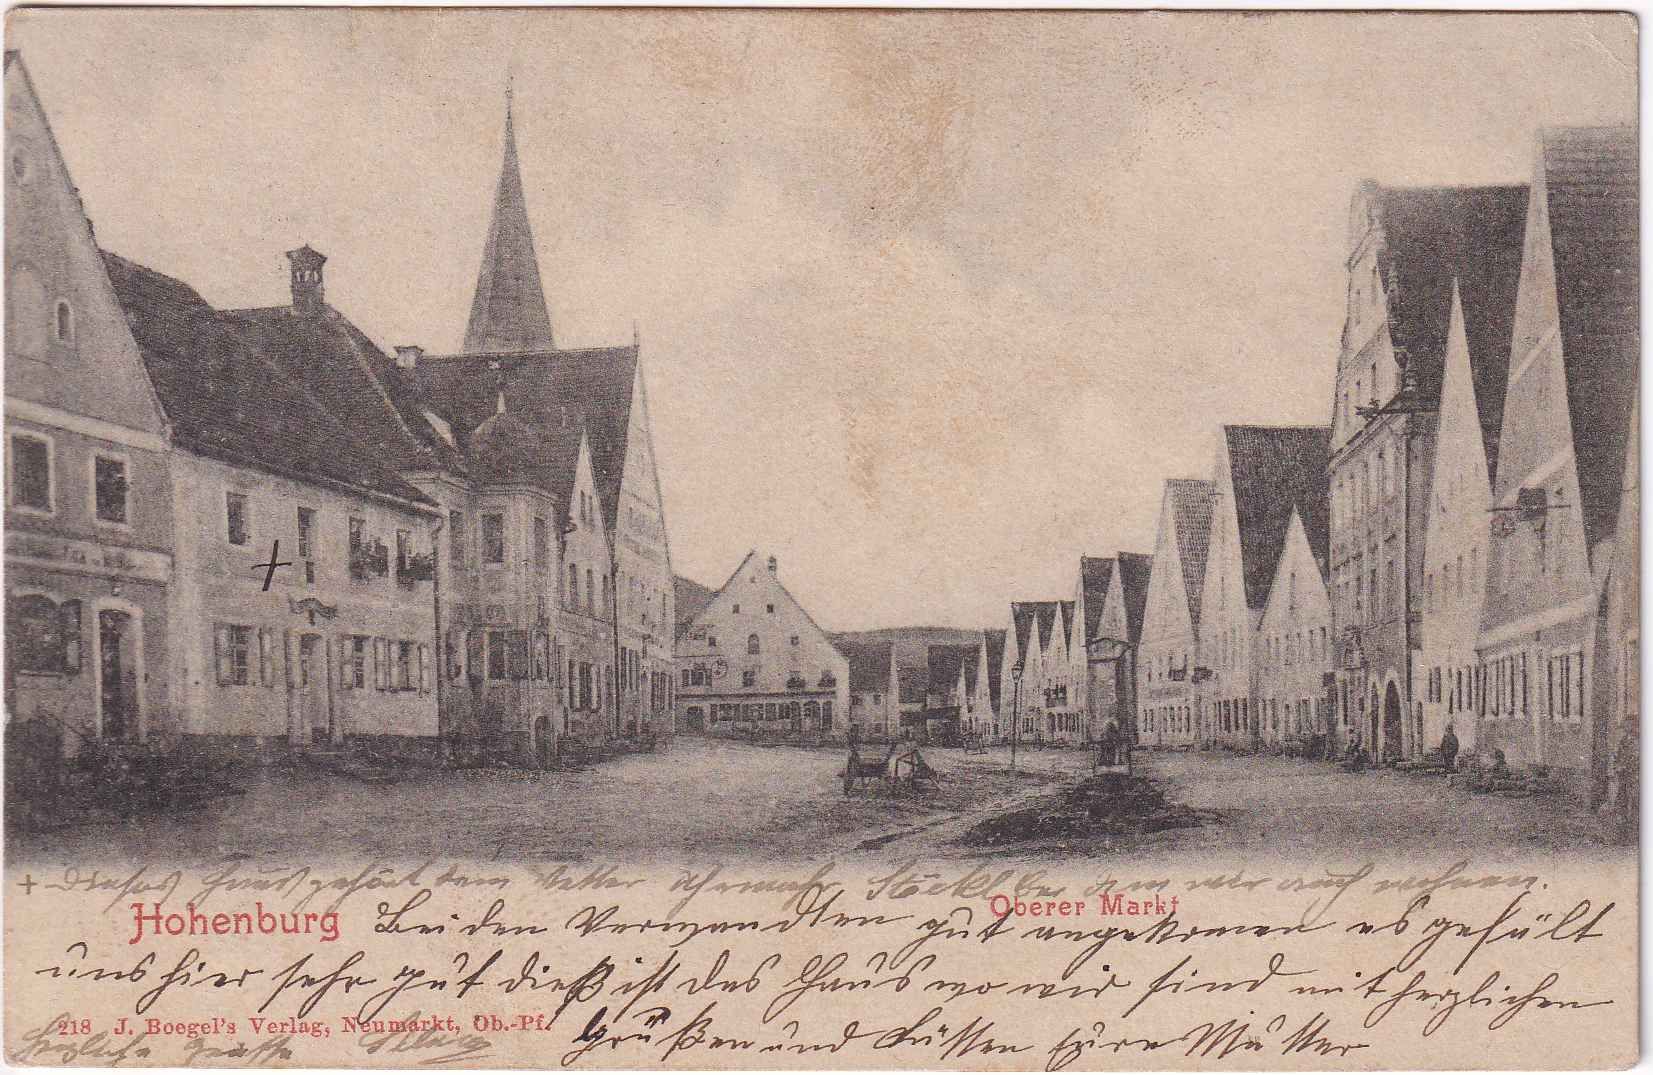 + Dieses Haus gehört dem Vetter Stöckl bei dem wir auch wohnen.
Hohenburg
Oberer Markt
Bei den Verwandten gut angekomen es gefält
uns hier sehr gut dieß ist das Haus wo wir sind mit herzlichen
Grüßen und Küssen Eure Mutter
218 J. Boegel's Verlag, Neumarkt, Ob.-Pf.
Herzliche Grüsse